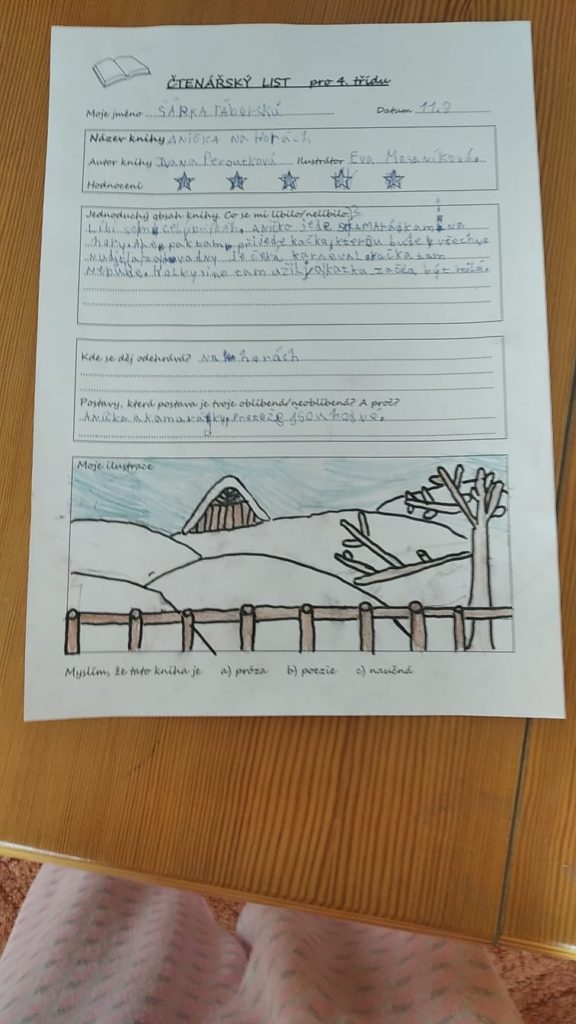 ČTENÁŘSKÝ LIST pro 4. třídu
Moje jméno ŠÁRKA Táborská Datum 11.2
Název knihy ANIČKA na Horách
Autor knihy Ivana Peroutková Ilustrátor Eva Mastníková.
Hodnocení
Jednoduchý obsah knihy. Co se mi líbilo/nelíbilo?
Líbil se mi celý příběh. Anička jede s kamarádkami na
hory. Ale pak tam přijede Kačka, která bude všechny
je čeká karneval. Kačka tam
nepůjde. Holky si to tam užili a Katka začla být milá.
Kde se děj odehrává? na horách
Postavy, která postava je tvoje oblíbená/neoblíbená? A proč?
Anička a kamarádky. Protože jsou hodné.
Moje ilustrace
Myslím, že tato kniha je a) próza b) poezie c) naučná